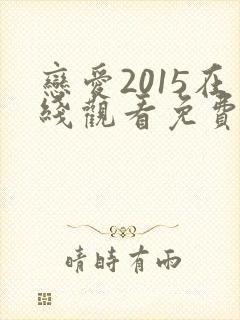 戀愛2015在
綫觀看免費
晴時有雨